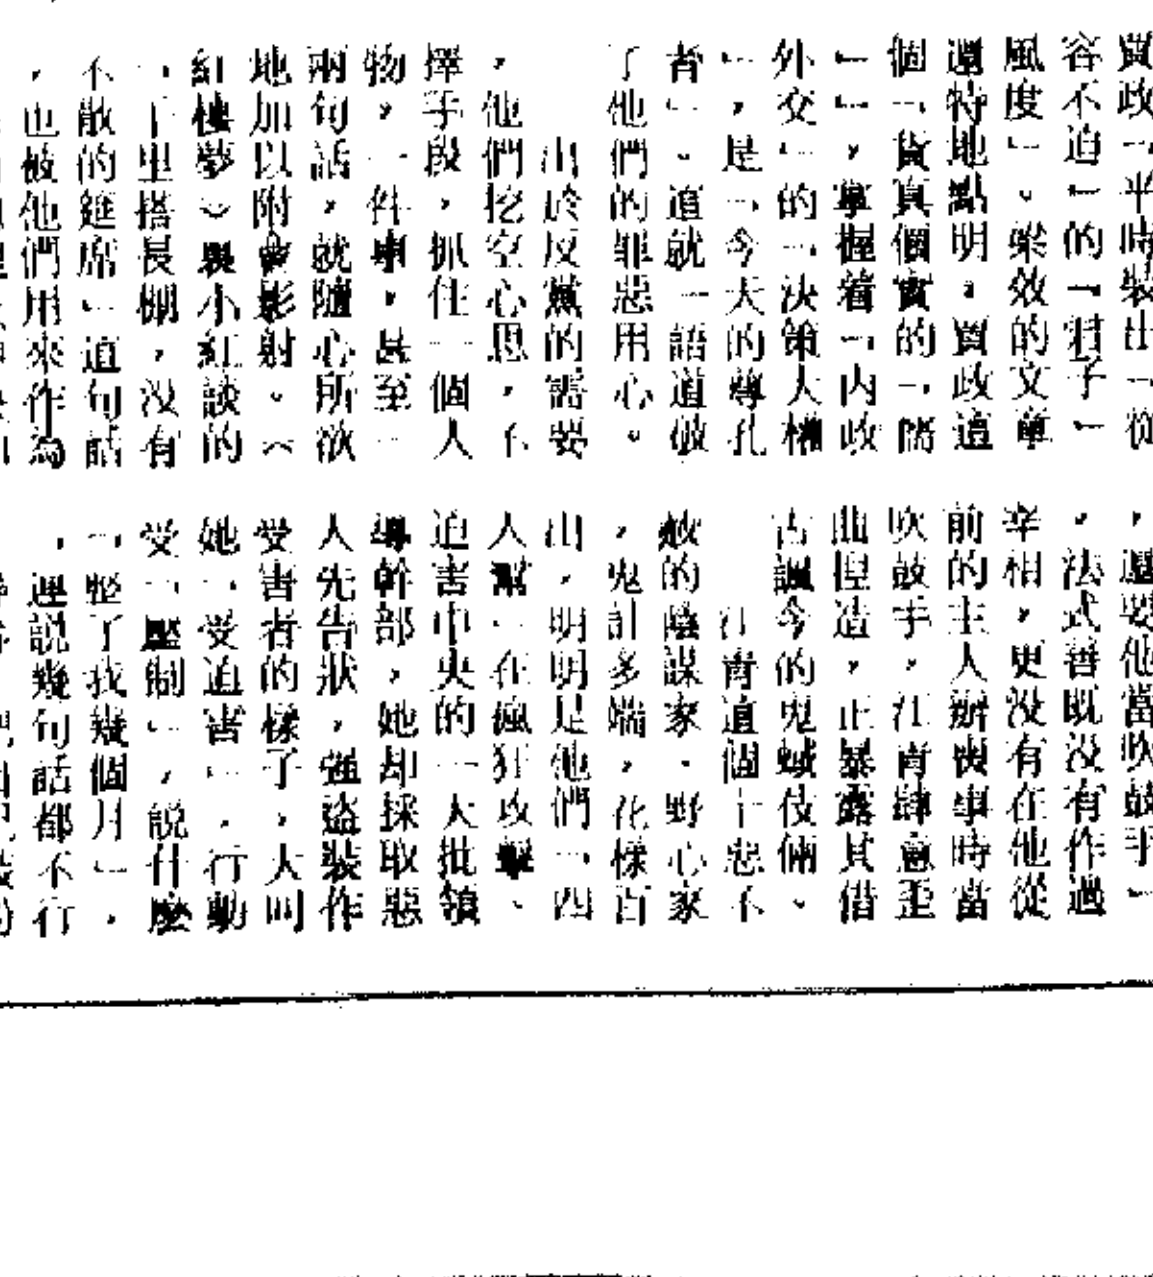 賈政「平時裝出「從
容不迫」的「君子」
風度」。梁效的文章
還特地點明，賈政這
個「貨真個實的「儒
」」，掌握着「內政
外交」的「決策大權
」，是「今天的尊孔
者」。這就一語道破
了他們的罪惡用心。
出於反黨的需要
，他們挖空心思，不
擇手段，抓住一個人
物，一件事，甚至一
兩句話，就隨心所欲
地加以附會影射。《
紅樓夢》裏小紅談的
「千里搭長棚，沒有
不散的筵席」這句話
，也被他們用來作為
，還要他當吹鼓手」
，法式善既沒有作過
宰相，更沒有在他從
前的主人辦喪事時當
吹鼓手，江青肆意歪
曲捏造，正暴露其借
古諷今的鬼蜮伎倆。
江青這個十惡不
赦的陰謀家、野心家
，鬼計多端，花樣百
出，明明是他們「四
人幫」在瘋狂攻擊、
迫害中央的一大批領
導幹部，她却採取惡
人先告狀，強盜裝作
受害者的樣子，大叫
她「受迫害」，行動
受「壓制」，說什麼
「整了我幾個月」，
，連説幾句話都不行